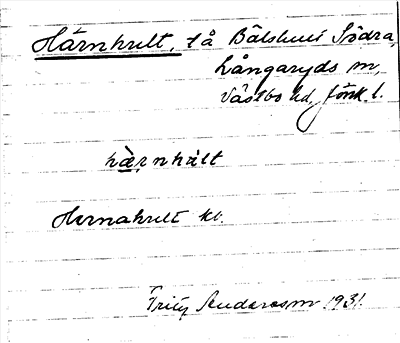 Härnhult, tå Bålshult Södra,
Långaryds sn,
Västbo hd, Jönk. l.
hæ̀rnhùlt
Hernahult kb.
Fritz Andersson 1931.